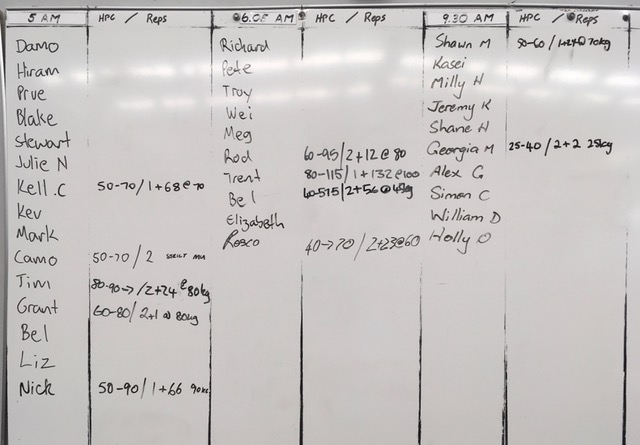 5 AM HPC / Reps
Damo
Hiram
Prue
Blake
Stewart
Julie N
Kell.C 50-70/1+68@70
Kev
Mark
Camo 50-70/2
Jim 80-90->/2+24@80kg
Grant 60-80/2+1@80kg
Bel
Liz
Nick 50-90/1+66 90kg
6.05 AM HPC / Reps
Richard
Pete
Troy
Wei
Meg
Rod 60-95/2+12@80
Trent 80-115/1+132@100
Bel
Elizabeth
Rosco 40->70/2+23@60
9.30 AM HPC / Reps
Shawn M 50-60/1+24@70kg
Kasei
Milly H
Jeremy K
Shane H
Georgia M 25-40/2+2 25kg
Alex G
Simon C
William D
Holly O